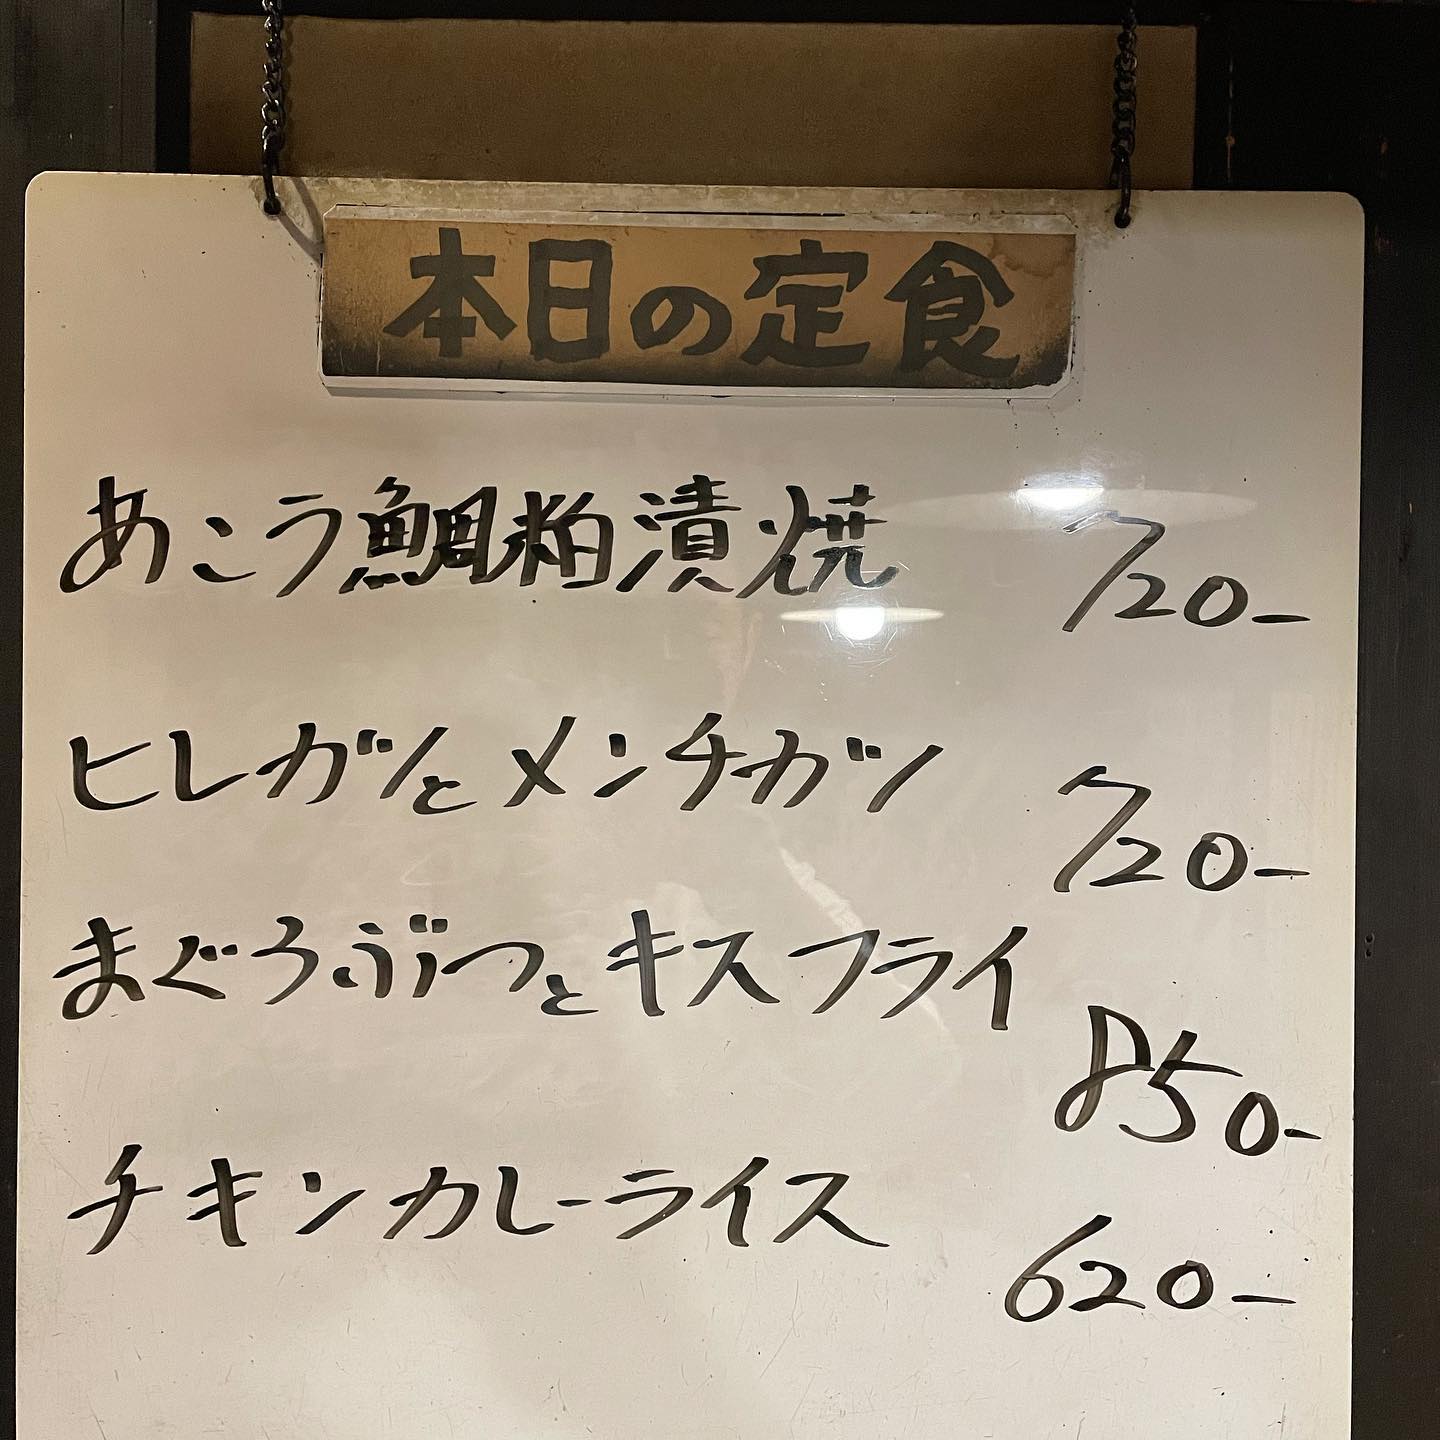 本日の定食
あこう鯛粕漬焼 720-
ヒレガツとメンチガツ 720-
まぐろぶつとキスフライ 850-
チキンカレーライス 620-